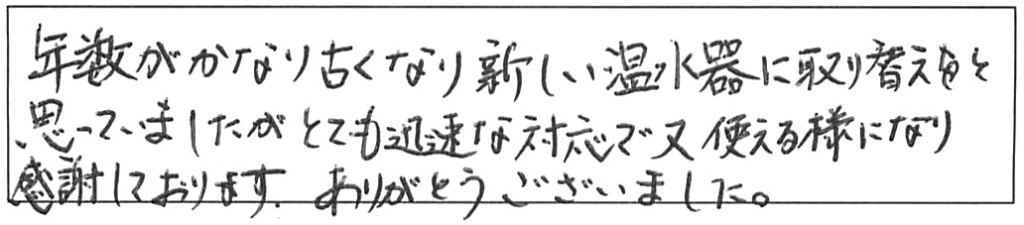 年数がかなり古くなり新しい温水器に取り替えをと
思っていましたがとても迅速な対応で又使える様になり
感謝しております。ありがとうございました。